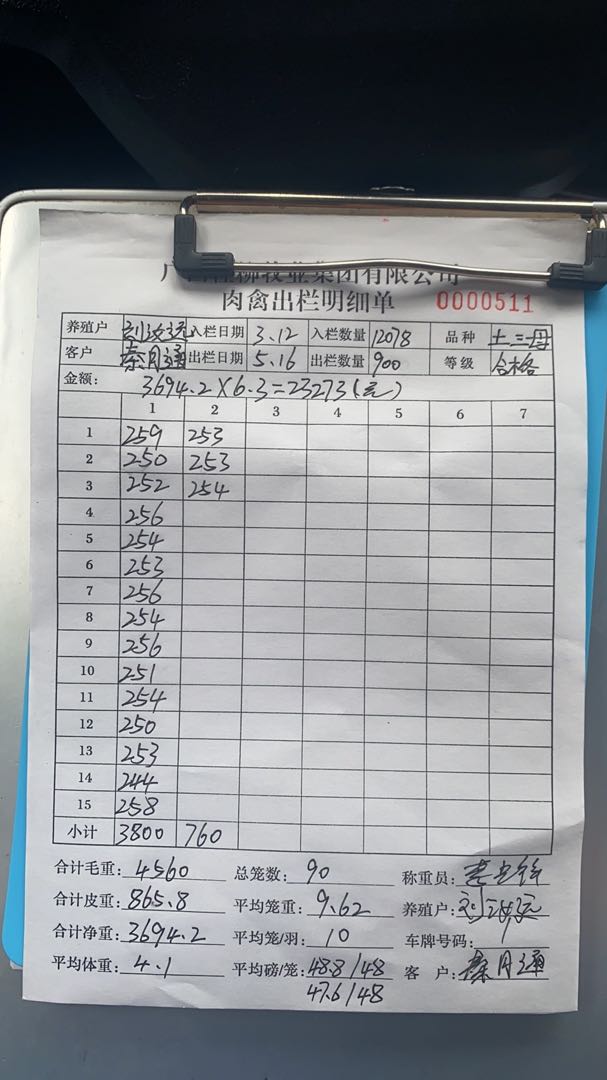 牧业集团有限公司
肉禽出栏明细单 0000511
养殖户 入栏日期 3.12 入栏数量 12078 品种 土二母
客户 秦月通 出栏日期 5.16 出栏数量 900 等级 合格
金额: 3694.2×6.3=23273(元)
1 2 3 4 5 6 7
1 259 253
2 250 253
3 252 254
4 256
5 254
6 253
7 256
8 254
9 256
10 251
11 254
12 250
13 253
14 244
15 258
小计 3800 760
合计毛重: 4560 总笼数: 90 称重员:
合计皮重: 865.8 平均笼重: 9.62 养殖户:
合计净重: 3694.2 平均笼/羽: 10 车牌号码: /
平均体重: 4.1 平均磅/笼: 48.8/48 客 户: 秦月通
47.6/48